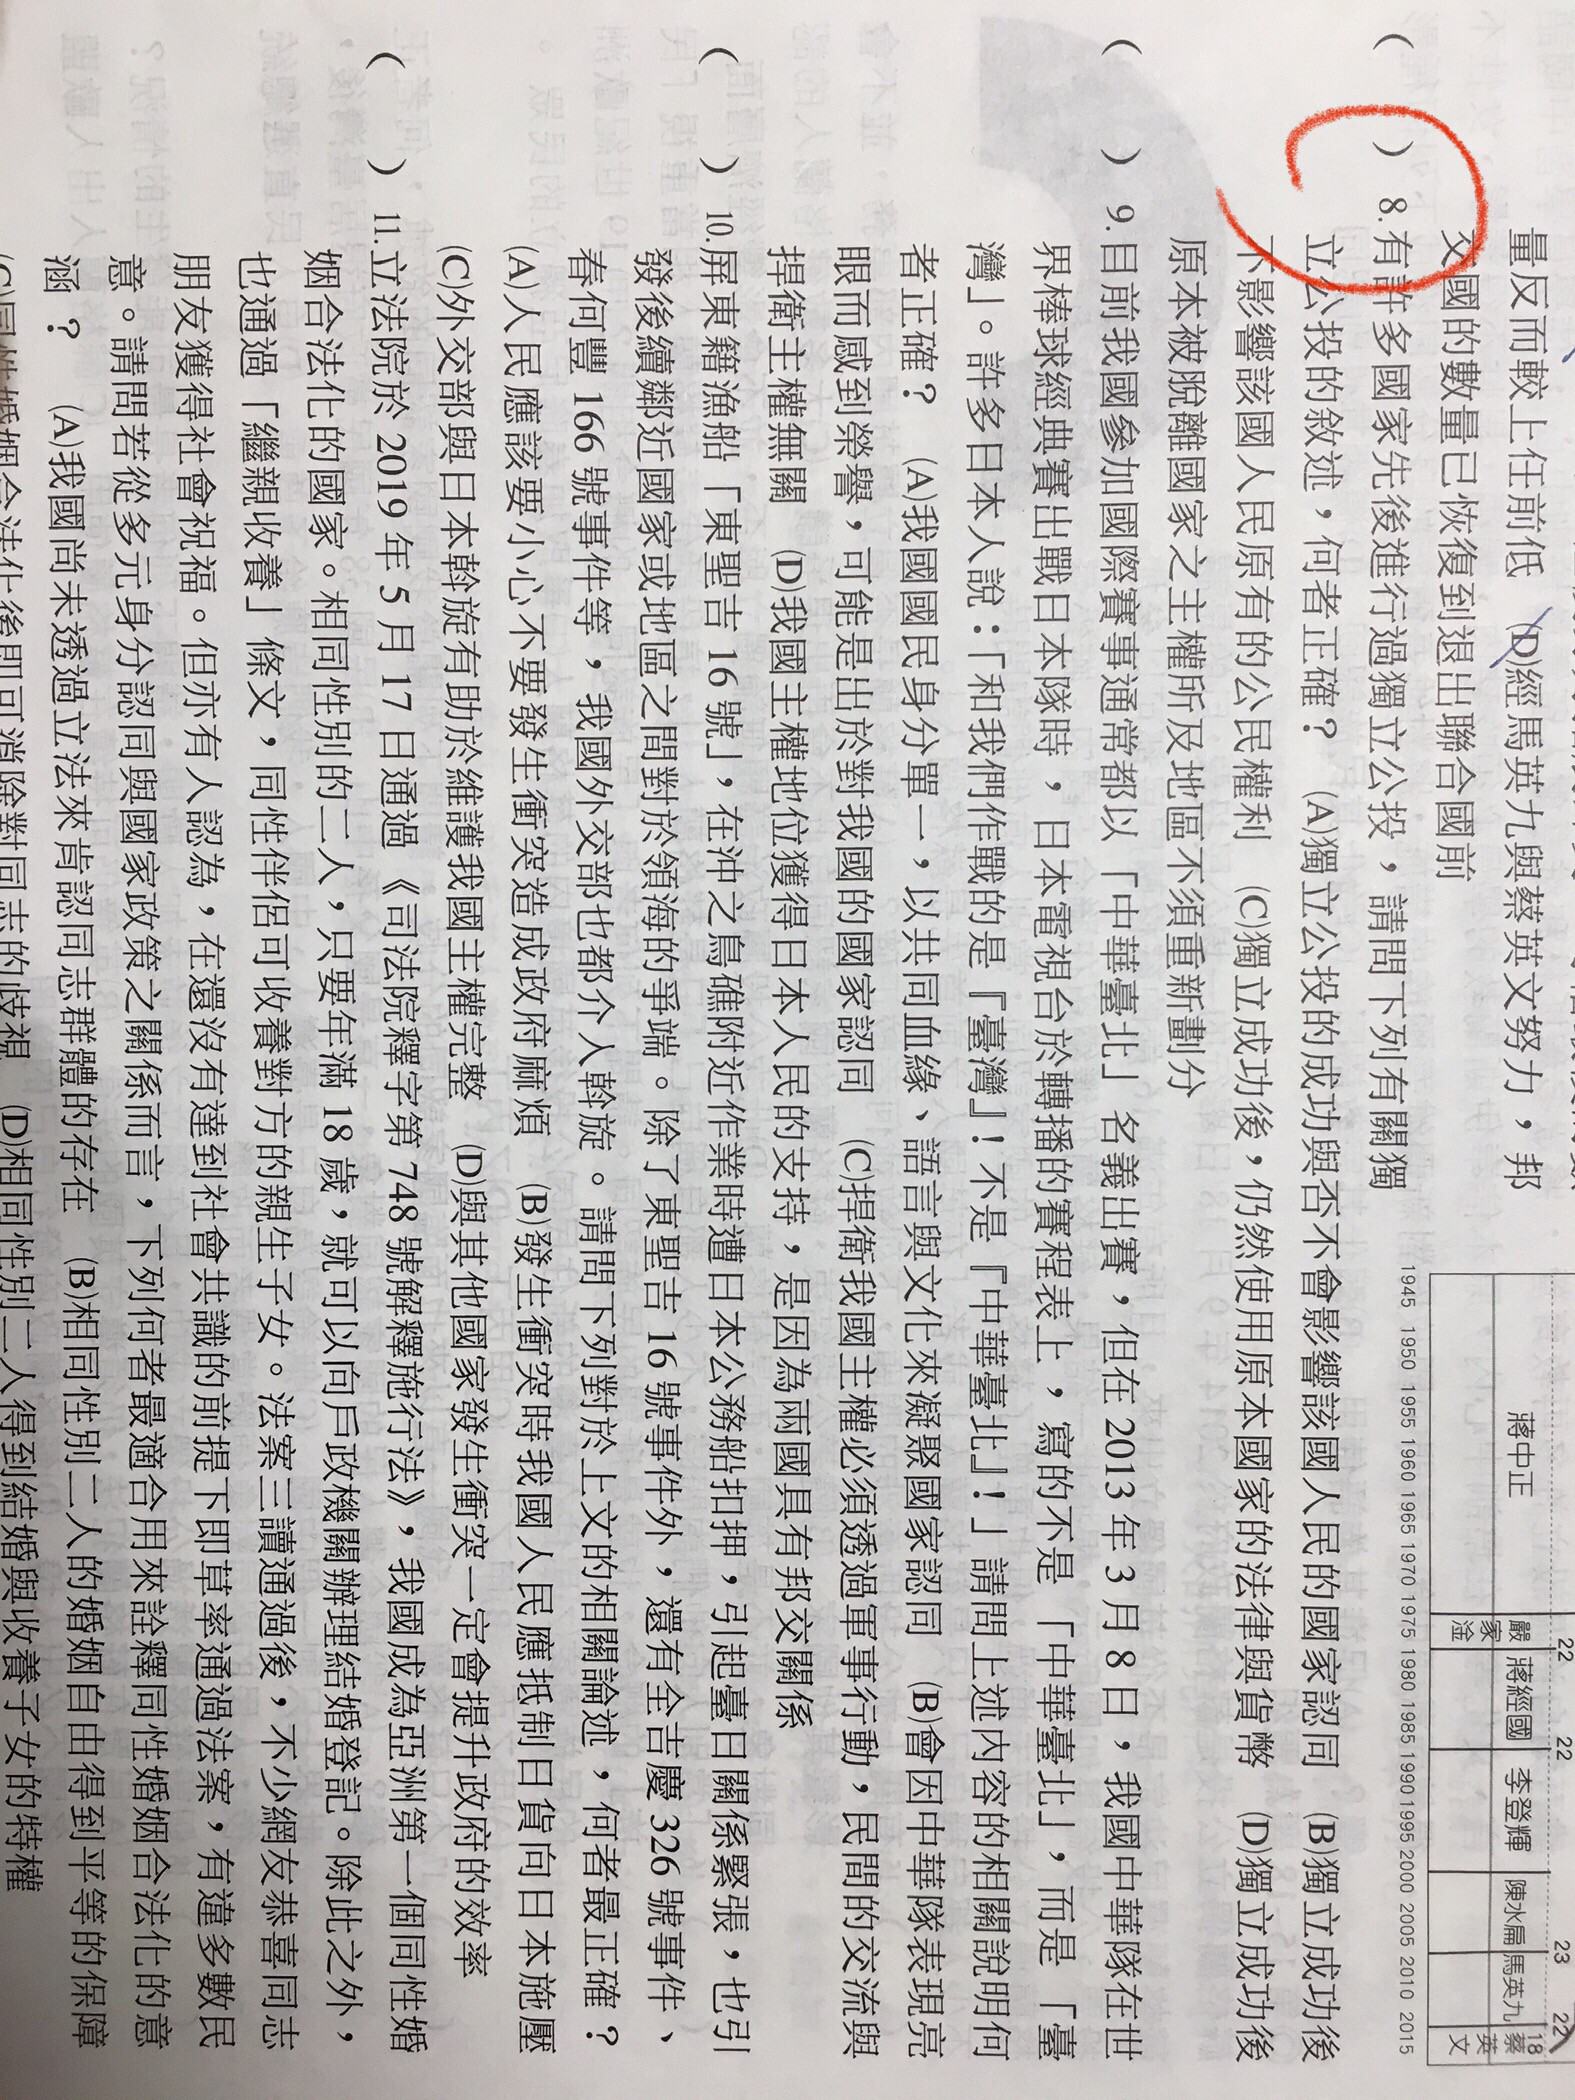 量反而較上任前低　(D)經馬英九與蔡英文努力，邦
交國的數量已恢復到退出聯合國前
22 22 23 22 18
蔣中正 嚴家淦 蔣經國 李登輝 陳水扁 馬英九 蔡英文
1945 1950 1955 1960 1965 1970 1975 1980 1985 1990 1995 2000 2005 2010 2015
(　　) 8.有許多國家先後進行過獨立公投，請問下列有關獨
立公投的敘述，何者正確？　(A)獨立公投的成功與否不會影響該國人民的國家認同　(B)獨立成功後
不影響該國人民原有的公民權利　(C)獨立成功後，仍然使用原本國家的法律與貨幣　(D)獨立成功後
原本被脫離國家之主權所及地區不須重新劃分
(　　) 9.目前我國參加國際賽事通常都以「中華臺北」名義出賽，但在 2013 年 3 月 8 日，我國中華隊在世
界棒球經典賽出戰日本隊時，日本電視台於轉播的賽程表上，寫的不是「中華臺北」，而是「臺
灣」。許多日本人說：「和我們作戰的是『臺灣』！不是『中華臺北』！」請問上述內容的相關說明何
者正確？　(A)我國國民身分單一，以共同血緣、語言與文化來凝聚國家認同　(B)會因中華隊表現亮
眼而感到榮譽，可能是出於對我國的國家認同　(C)捍衛我國主權必須透過軍事行動，民間的交流與
捍衛主權無關　(D)我國主權地位獲得日本人民的支持，是因為兩國具有邦交關係
(　　) 10.屏東籍漁船「東聖吉 16 號」，在沖之鳥礁附近作業時遭日本公務船扣押，引起臺日關係緊張，也引
發後續鄰近國家或地區之間對於領海的爭端。除了東聖吉 16 號事件外，還有全吉慶 326 號事件、
春何豐 166 號事件等，我國外交部也都介入斡旋。請問下列對於上文的相關論述，何者最正確？
(A)人民應該要小心不要發生衝突造成政府麻煩　(B)發生衝突時我國人民應抵制日貨向日本施壓
(C)外交部與日本斡旋有助於維護我國主權完整　(D)與其他國家發生衝突一定會提升政府的效率
(　　) 11.立法院於 2019 年 5 月 17 日通過《司法院釋字第 748 號解釋施行法》，我國成為亞洲第一個同性婚
姻合法化的國家。相同性別的二人，只要年滿 18 歲，就可以向戶政機關辦理結婚登記。除此之外，
也通過「繼親收養」條文，同性伴侶可收養對方的親生子女。法案三讀通過後，不少網友恭喜同志
朋友獲得社會祝福。但亦有人認為，在還沒有達到社會共識的前提下即草率通過法案，有違多數民
意。請問若從多元身分認同與國家政策之關係而言，下列何者最適合用來詮釋同性婚姻合法化的意
涵？　(A)我國尚未透過立法來肯認同志群體的存在　(B)相同性別二人的婚姻自由得到平等的保障
(C)同性婚姻合法化後即可消除對同志的歧視　(D)相同性別二人得到結婚與收養子女的特權